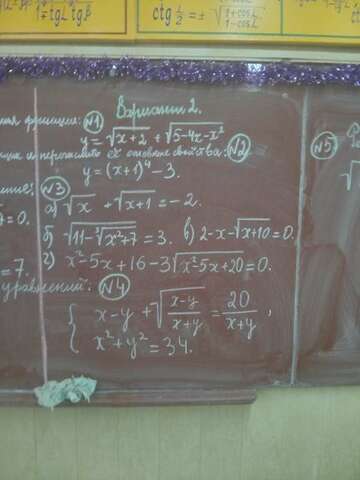 1+tgα tgβ
ctg α/2 = ± √(1+cosα / 1−cosα)
Вариант 2.
функции: №1
y = √(x+2) + √(5−4x−x²)
её основные свойства: №2
y = (x+1)⁴ − 3.
№3
а) √x + √(x+1) = −2.
б) √(11−∛(x²+7)) = 3. в) 2−x−√(x+10) = 0.
г) x²−5x+16−3√(x²−5x+20) = 0.
= 7.
№4
{ x−y + √((x−y)/(x+y)) = 20/(x+y),
x²+y² = 34.
№5